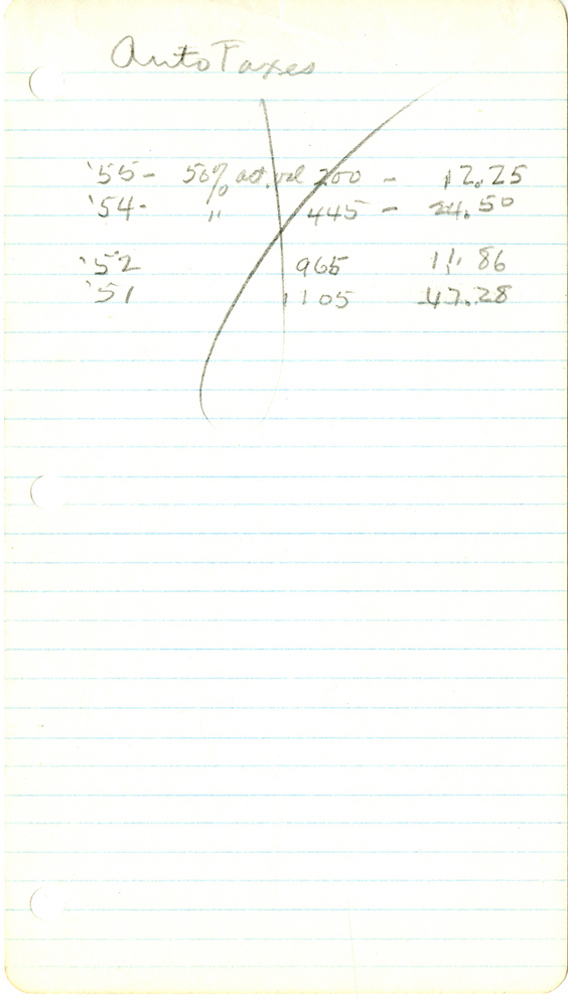 Auto Taxes
'55- 50% act. val 200 - 12.25
'54- " 445 - 24.50
'52 965 11.86
'51 1105 47.28